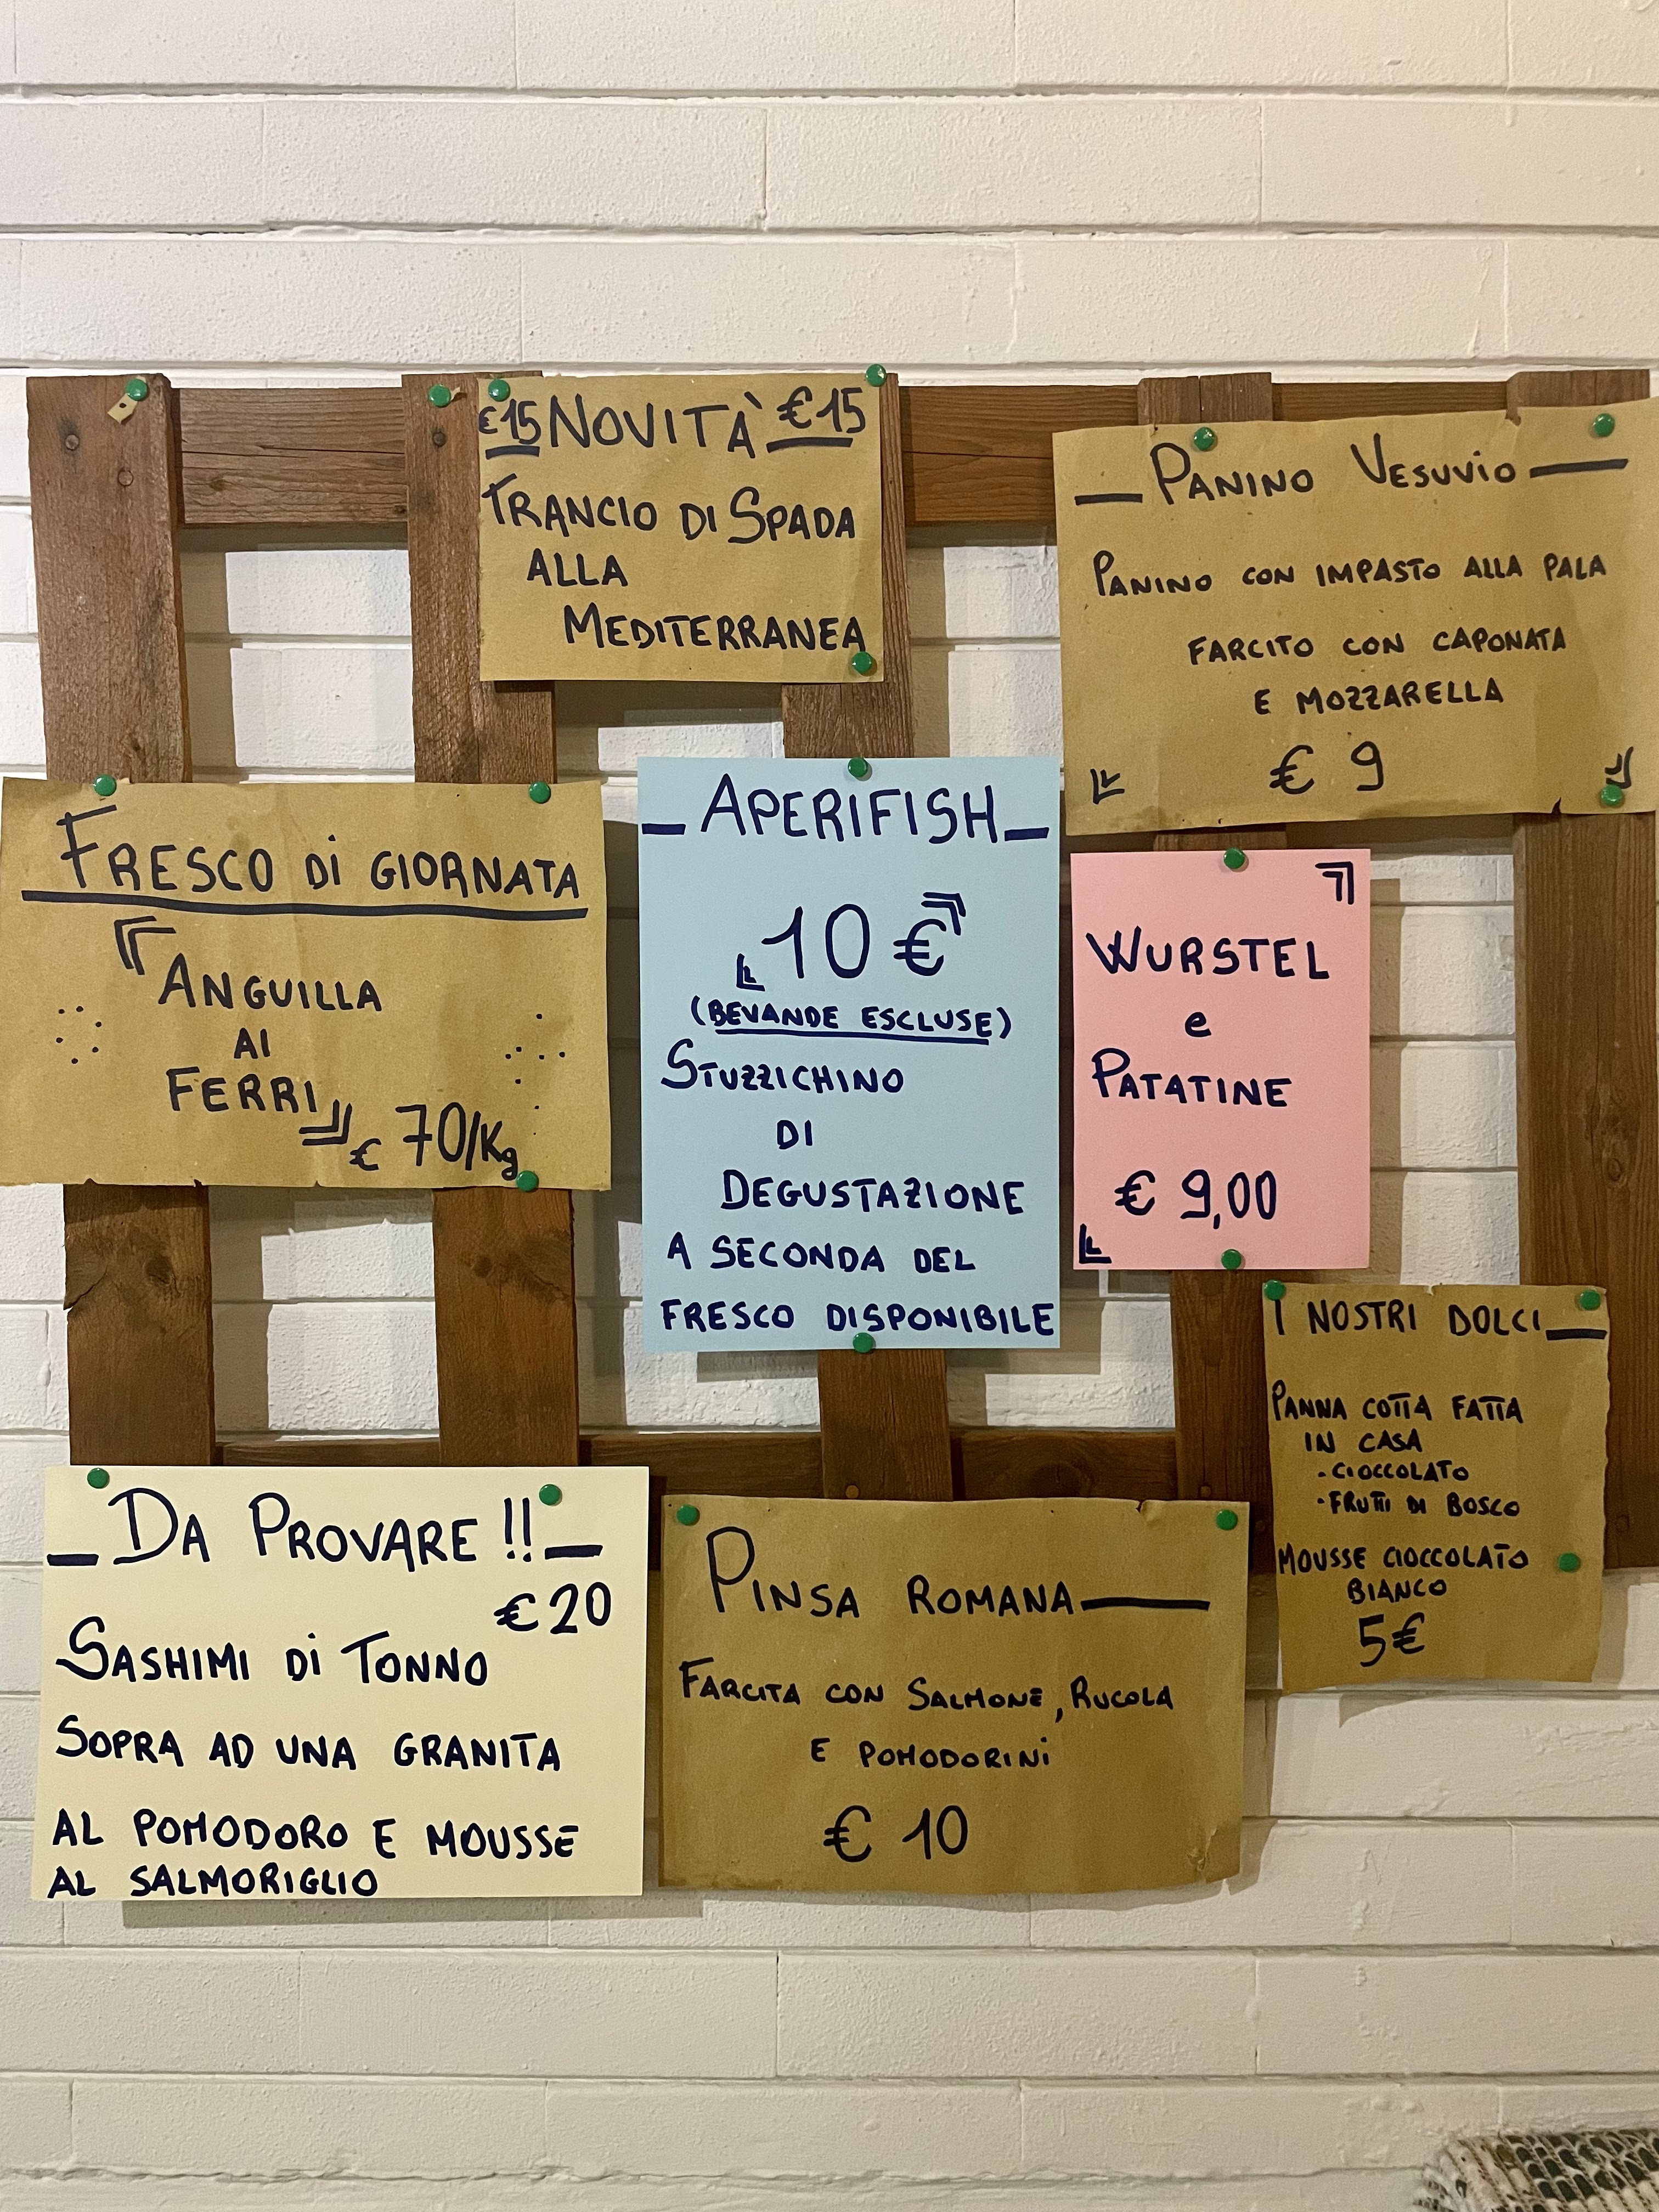 €15 NOVITÀ €15
TRANCIO DI SPADA
ALLA
MEDITERRANEA
PANINO VESUVIO
PANINO CON IMPASTO ALLA PALA
FARCITO CON CAPONATA
E MOZZARELLA
€ 9
FRESCO Di GIORNATA
ANGUILLA
AI
FERRI
€ 70/Kg
APERIFISH
10 €
(BEVANDE ESCLUSE)
STUZZICHINO
DI
DEGUSTAZIONE
A SECONDA DEL
FRESCO DISPONIBILE
WURSTEL
e
PATATINE
€ 9,00
I NOSTRI DOLCI
PANNA COTTA FATTA
IN CASA
- CIOCCOLATO
- FRUTTI DI BOSCO
MOUSSE CIOCCOLATO
BIANCO
5€
DA PROVARE !!
€20
SASHIMI Di TONNO
SOPRA AD UNA GRANITA
AL POMODORO E MOUSSE
AL SALMORIGLIO
PINSA ROMANA
FARCITA CON SALMONE, RUCOLA
E POMODORINi
€ 10